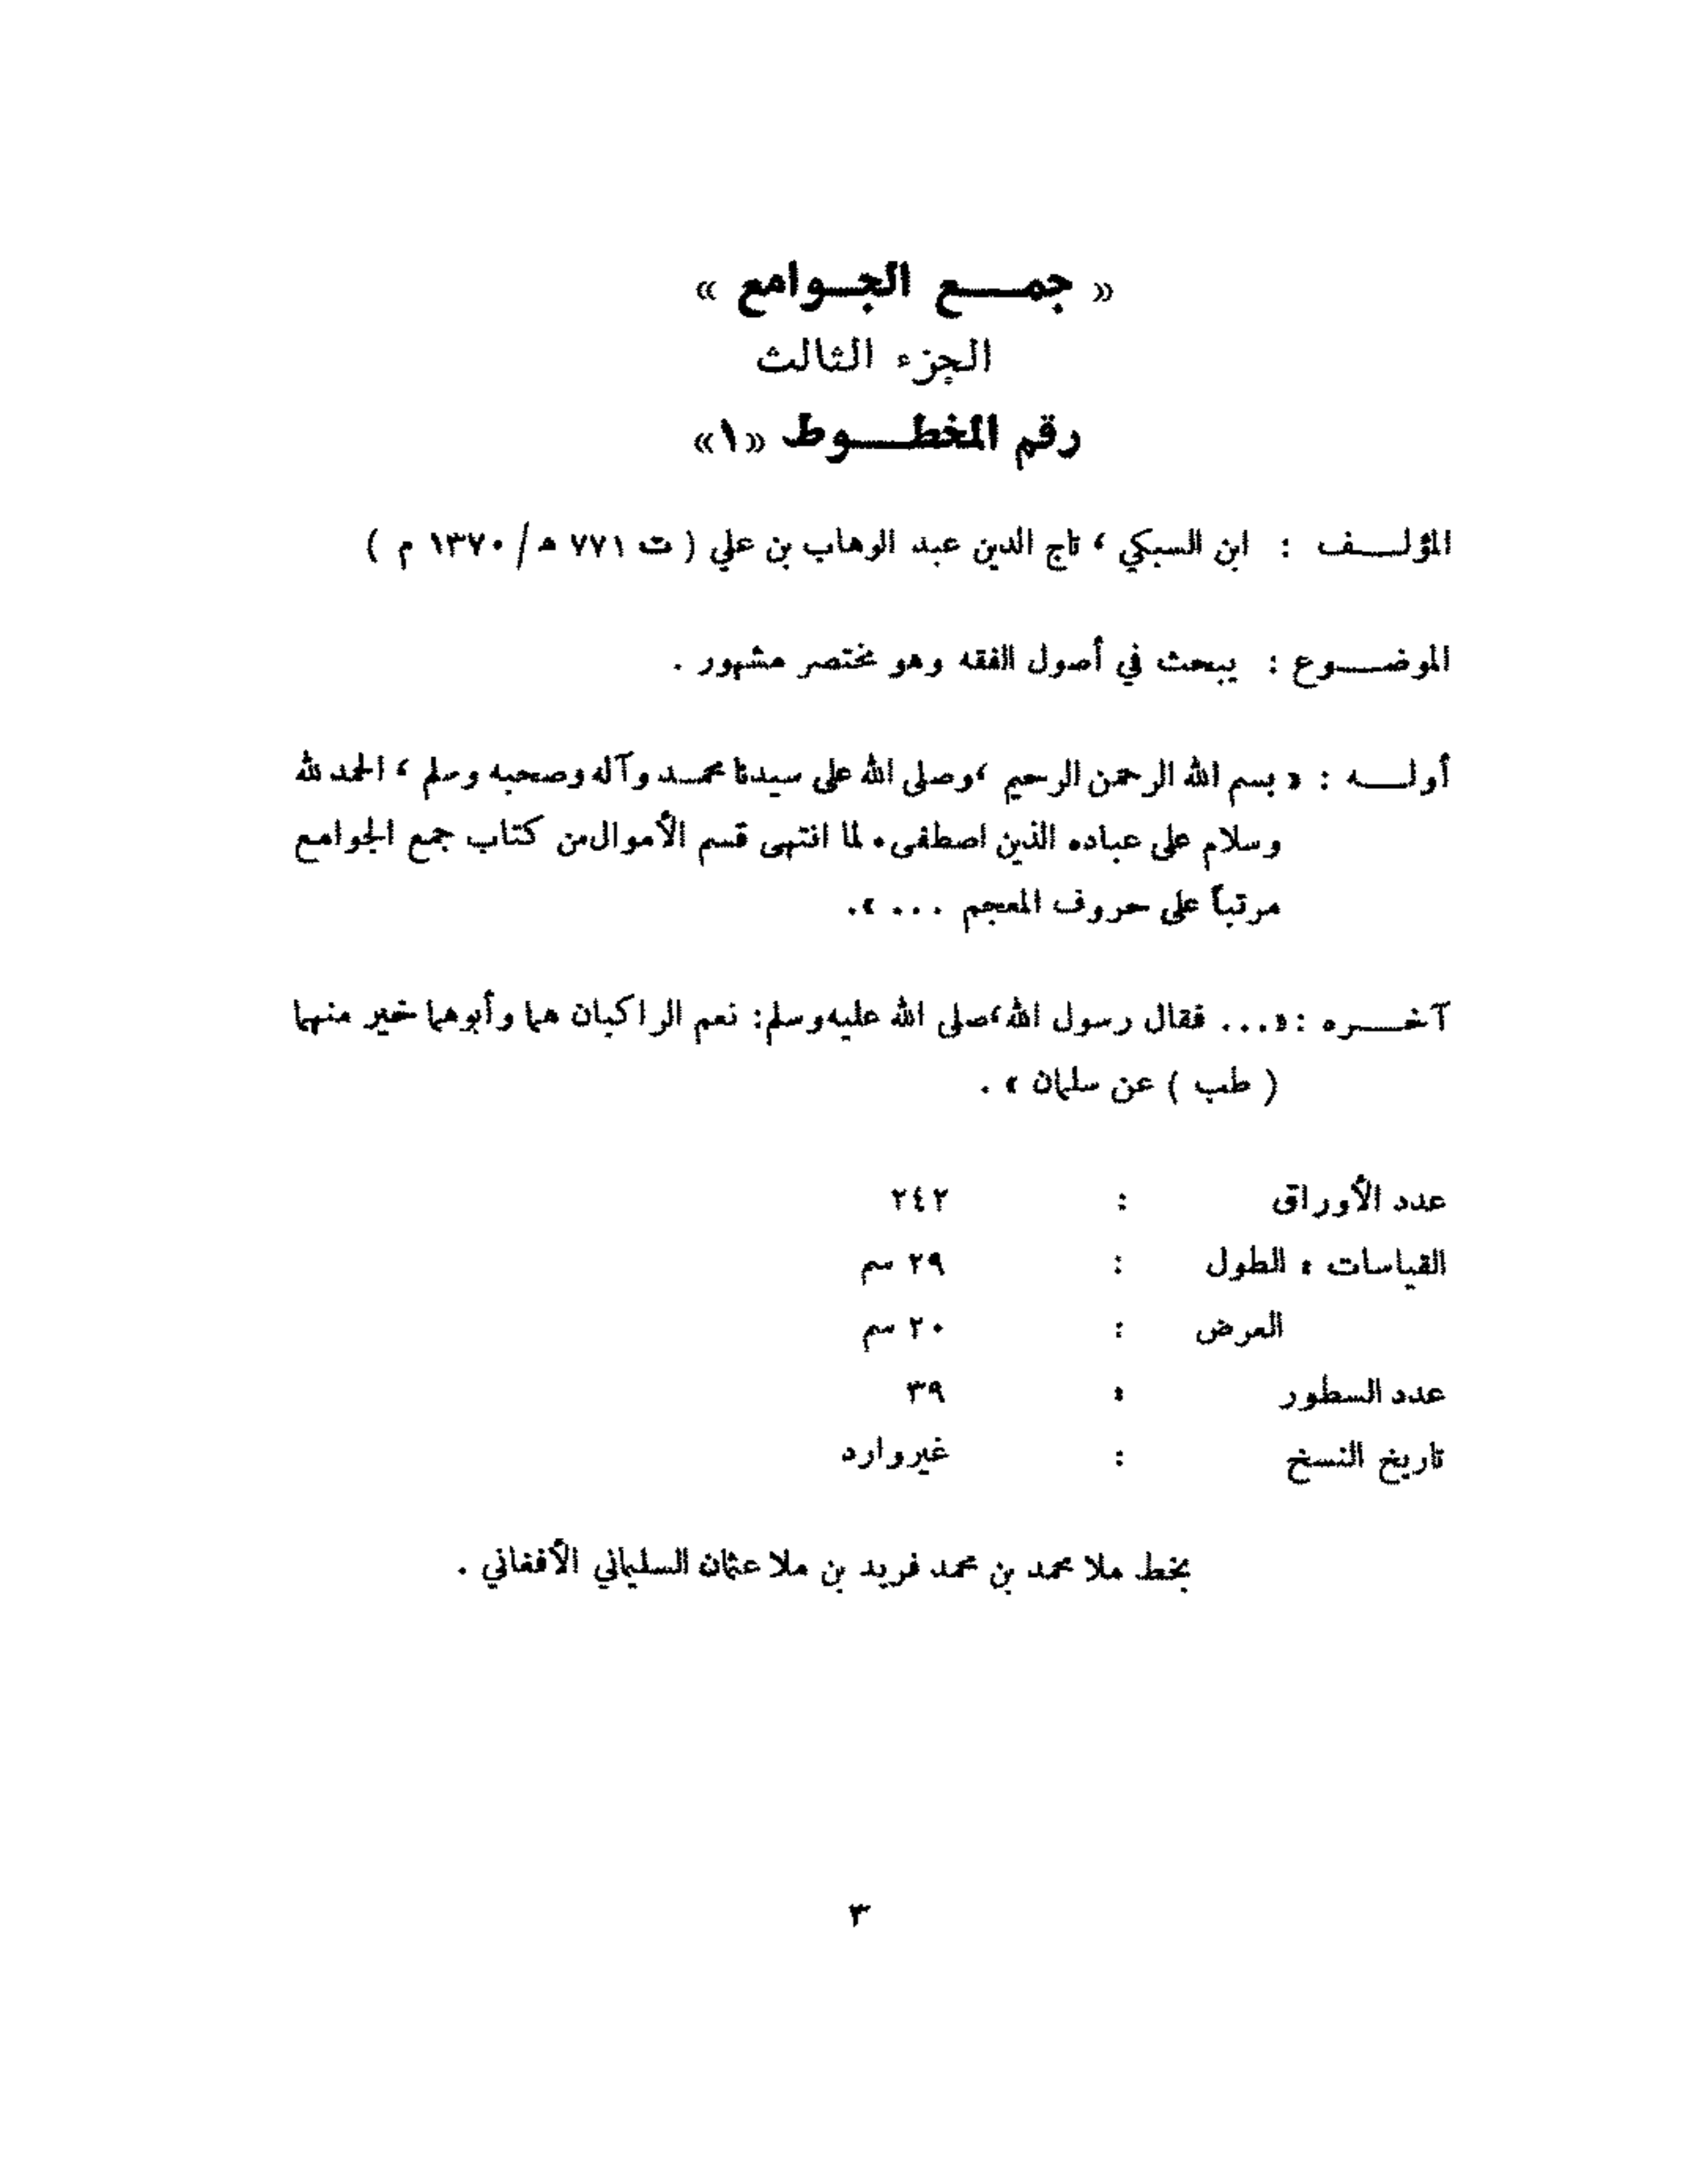 « جمع الجوامع »
الجزء الثالث
رقم المخطوط «١»
المؤلف : ابن السبكي ، تاج الدين عبد الوهاب بن علي ( ت ٧٧١ ه / ١٣٧٠ م )
الموضوع : يبحث في أصول الفقه وهو مختصر مشهور .
أوله : « بسم الله الرحمن الرحيم ، وصلى الله على سيدنا محمد وآله وصحبه وسلم ، الحمد لله
وسلام على عباده الذين اصطفى . لما انتهى قسم الأموال من كتاب جمع الجوامع
مرتباً على حروف المعجم ... » .
آخره : « ... فقال رسول الله ، صلى الله عليه وسلم : نعم الراكبان هما وأبوهما خير منهما
( طب ) عن سلمان » .
عدد الأوراق : ٢٤٢
القياسات : الطول : ٢٩ سم
العرض : ٢٠ سم
عدد السطور : ٣٩
تاريخ النسخ : غير وارد
بخط ملا محمد بن محمد فريد بن ملا عثمان السليماني الأفغاني .
٣